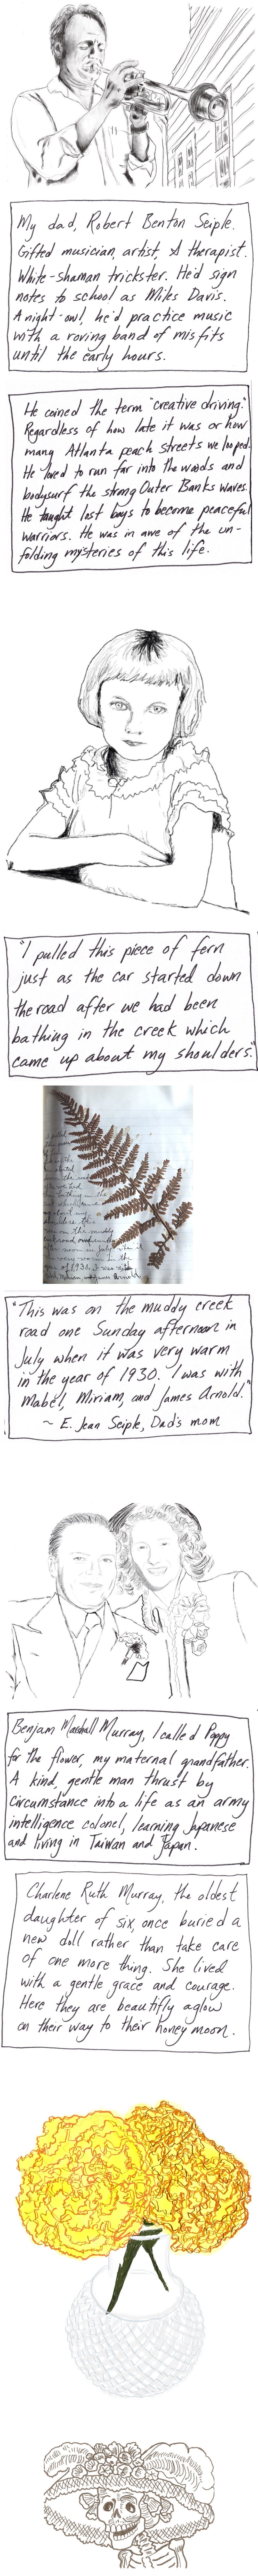 My dad, Robert Benton Seiple.
Gifted musician, artist, & therapist.
White-shaman trickster. He'd sign
notes to school as Miles Davis.
A night-owl, he'd practice music
with a roving band of misfits
until the early hours.
He coined the term "creative driving."
Regardless of how late it was or how
many Atlanta peach streets we looped.
He loved to run far into the woods and
bodysurf the strong Outer Banks waves.
He taught lost boys to become peaceful
warriors. He was in awe of the un-
folding mysteries of this life.
"I pulled this piece of fern
just as the car started down
the road after we had been
bathing in the creek which
came up about my shoulders."
"This was on the muddy creek
road one Sunday afternoon in
July when it was very warm
in the year of 1930. I was with
Mabel, Miriam, and James Arnold."
~ E. Jean Seiple, Dad's mom
Benjam Marshall Murray, I called Poppy
for the flower, my maternal grandfather.
A kind, gentle man thrust by
circumstance into a life as an army
intelligence colonel, learning Japanese
and living in Taiwan and Japan.
Charlene Ruth Murray, the oldest
daughter of six, once buried a
new doll rather than take care
of one more thing. She lived
with a gentle grace and courage.
Here they are beautifly aglow
on their way to their honey moon.